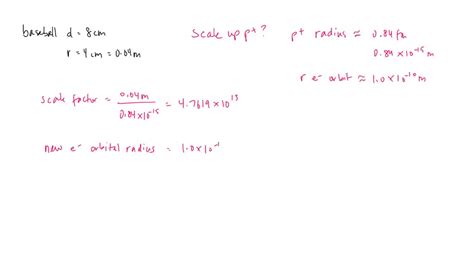 baseball d = 8cm
r = 4 cm = 0.04m
scale up p+ ?
p+ radius ≈ 0.84 fm
0.84 × 10^-15 m
r e- orbit ≈ 1.0 × 10^-10 m
scale factor = 0.04m / 0.84×10^-15 = 4.7619 × 10^13
new e- orbital radius = 1.0 × 10^-1